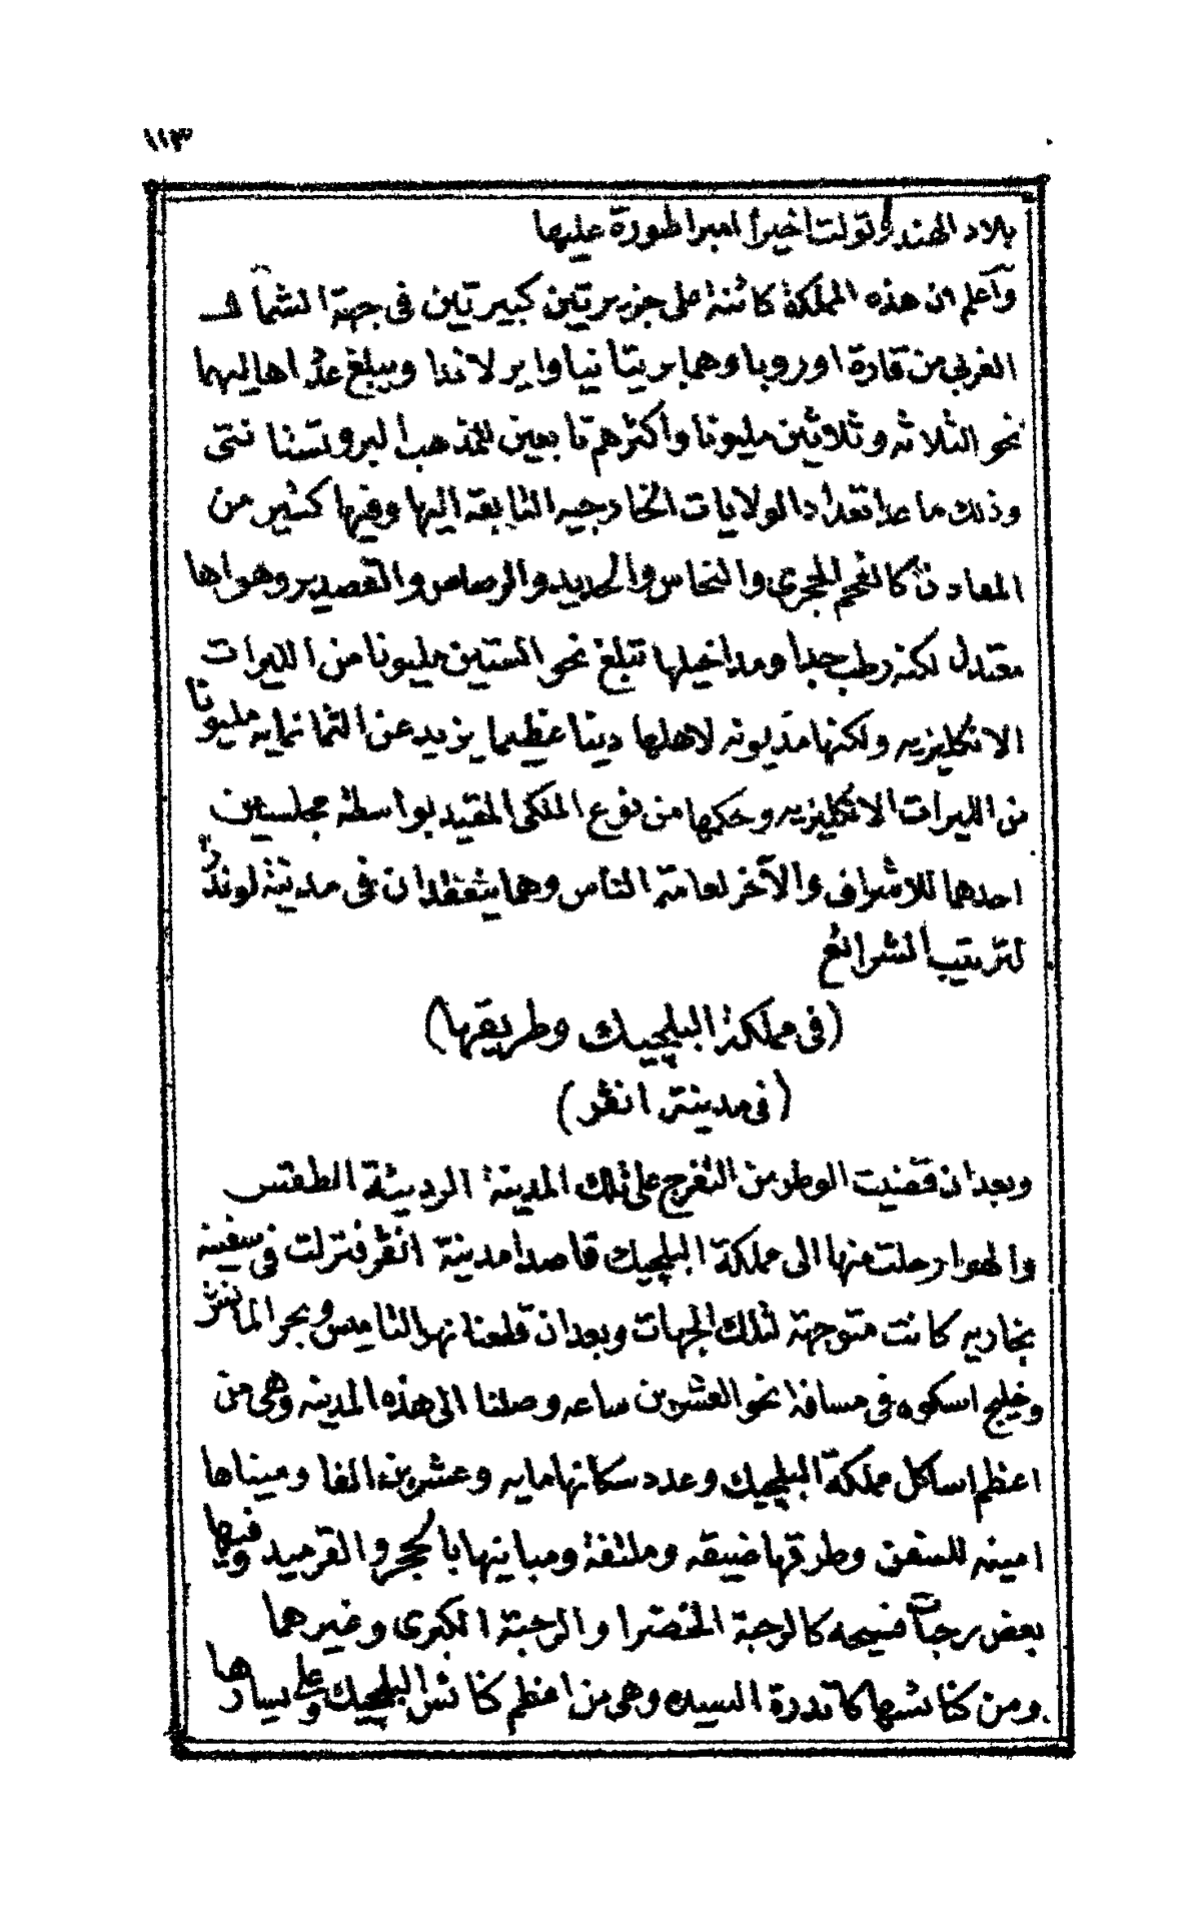 ١١٣
بلاد الهند وتولت اخيرا امبراطورة عليها
واعلم ان هذه المملكة كائنة على جزيرتين كبيرتين فى جهة الشمال
الغربى من قارة اوروبا وهما بريتانيا وايرلاندا ويبلغ عدد اهاليهما
نحو الثلاثه وثلاثين مليونا واكثرهم تابعين للمذهب البروتستنانتى
وذلك ما عدا تعداد الولايات الخارجيه التابعة اليها وفيها كثير من
المعادن كالفحم الحجرى والنحاس والحديد والرصاص والقصدير وهواها
معتدل لكنه رطب جدا ومداخيلها تبلغ نحو الستين مليونا من الليرات
الانكليزيه ولكنها مديونه لاهلها دينا عظيما يزيد عن الثمانمايه مليونا
من الليرات الانكليزيه وحكمها من نوع الملكى المقيد بواسطة مجلسين
احدهما للاشراف والآخر لعامة الناس وهما ينعقدان فى مدينة لوندرا
لترتيب الشرائع
(فى مملكة البلجيك وطريقها)
(فى مدينة انڤر)
وبعد ان قضيت الوطر من التفرج على تلك المدينة الرديئة الطقس
والهوا رحلت منها الى مملكة البلجيك قاصدا مدينة انڤر فنزلت فى سفينه
بخاريه كانت متوجهة لتلك الجهات وبعد ان قطعنا نهر التاميس وبحر المانش
وخليج اسكوه فى مسافة نحو العشرين ساعه وصلنا الى هذه المدينه وهى من
اعظم اساكل مملكة البلجيك وعدد سكانها مايه وعشرين الفا وميناها
امينه للسفن وطرقها ضيقه وملتفة ومبانيها بالحجر والقرميد وفيها
بعض رحبات فسيحه كالرحبة الخضرا والرحبة الكبرى وغيرهما
ومن كنائسها كاتدرة السيده وهى من اعظم كنائس البلجيك وعلى يسارها